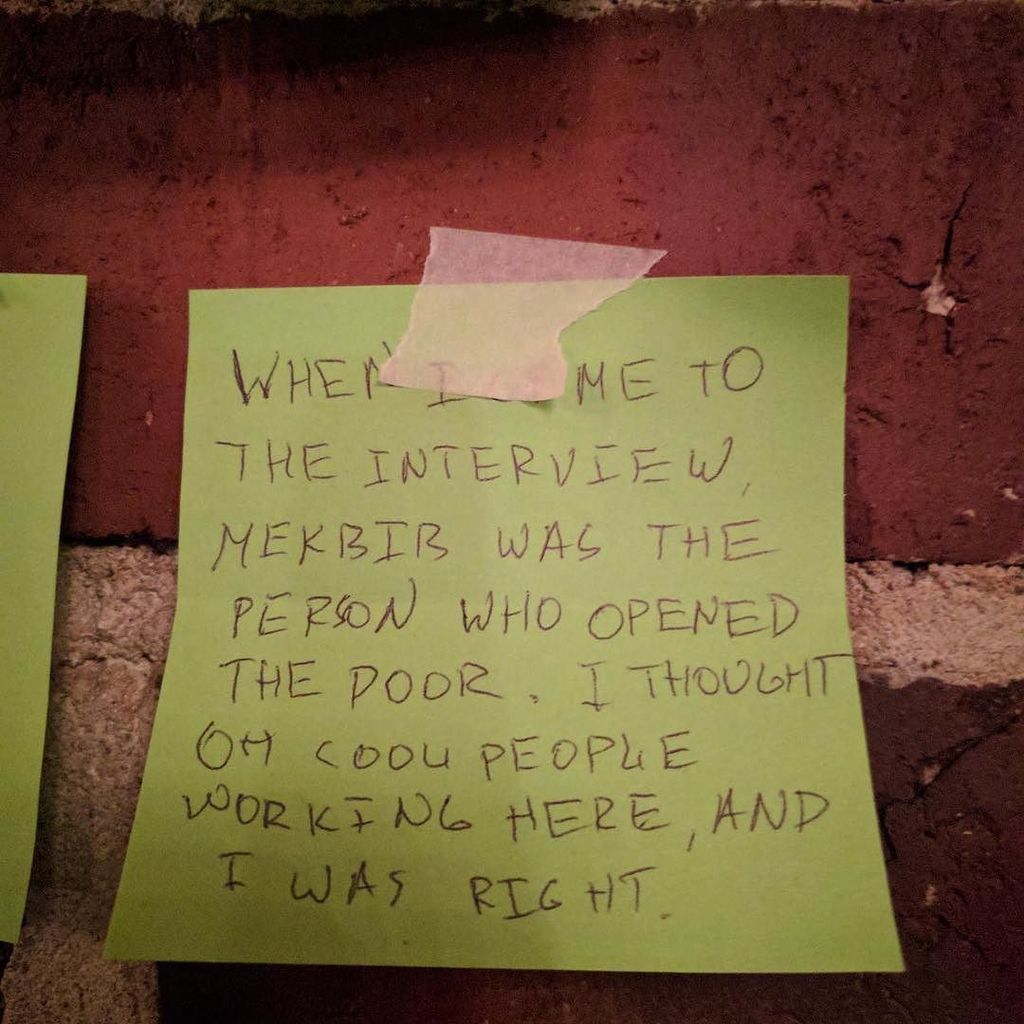 WHEN I CAME TO
THE INTERVIEW,
MEKBIB WAS THE
PERSON WHO OPENED
THE DOOR. I THOUGHT
OH COOL PEOPLE
WORKING HERE, AND
I WAS RIGHT.